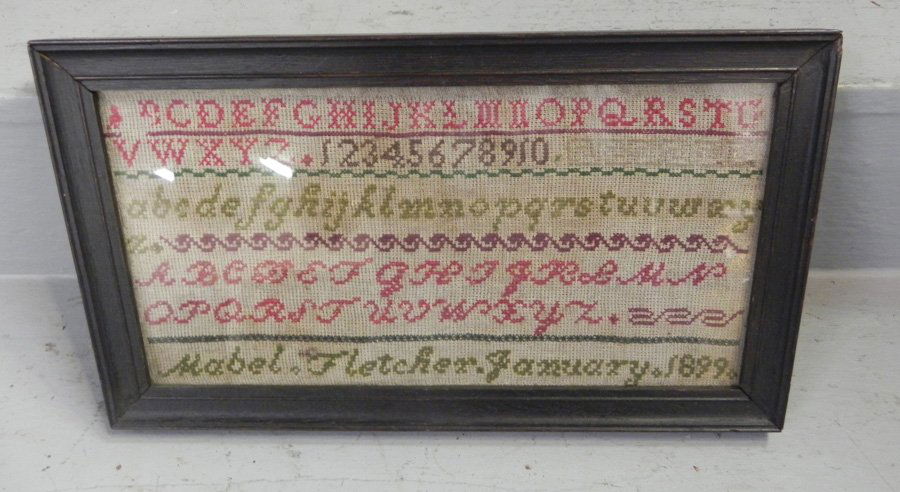 A B C D E F G H I J K L M N O P Q R S T U
V W X Y Z . 1 2 3 4 5 6 7 8 9 10 .
a b c d e f g h i j k l m n o p q r s t u v w x y
z .
A B C D E F G H I J K L M N
O P Q R S T U V W X Y Z .
Mabel . Fletcher . January . 1899 .